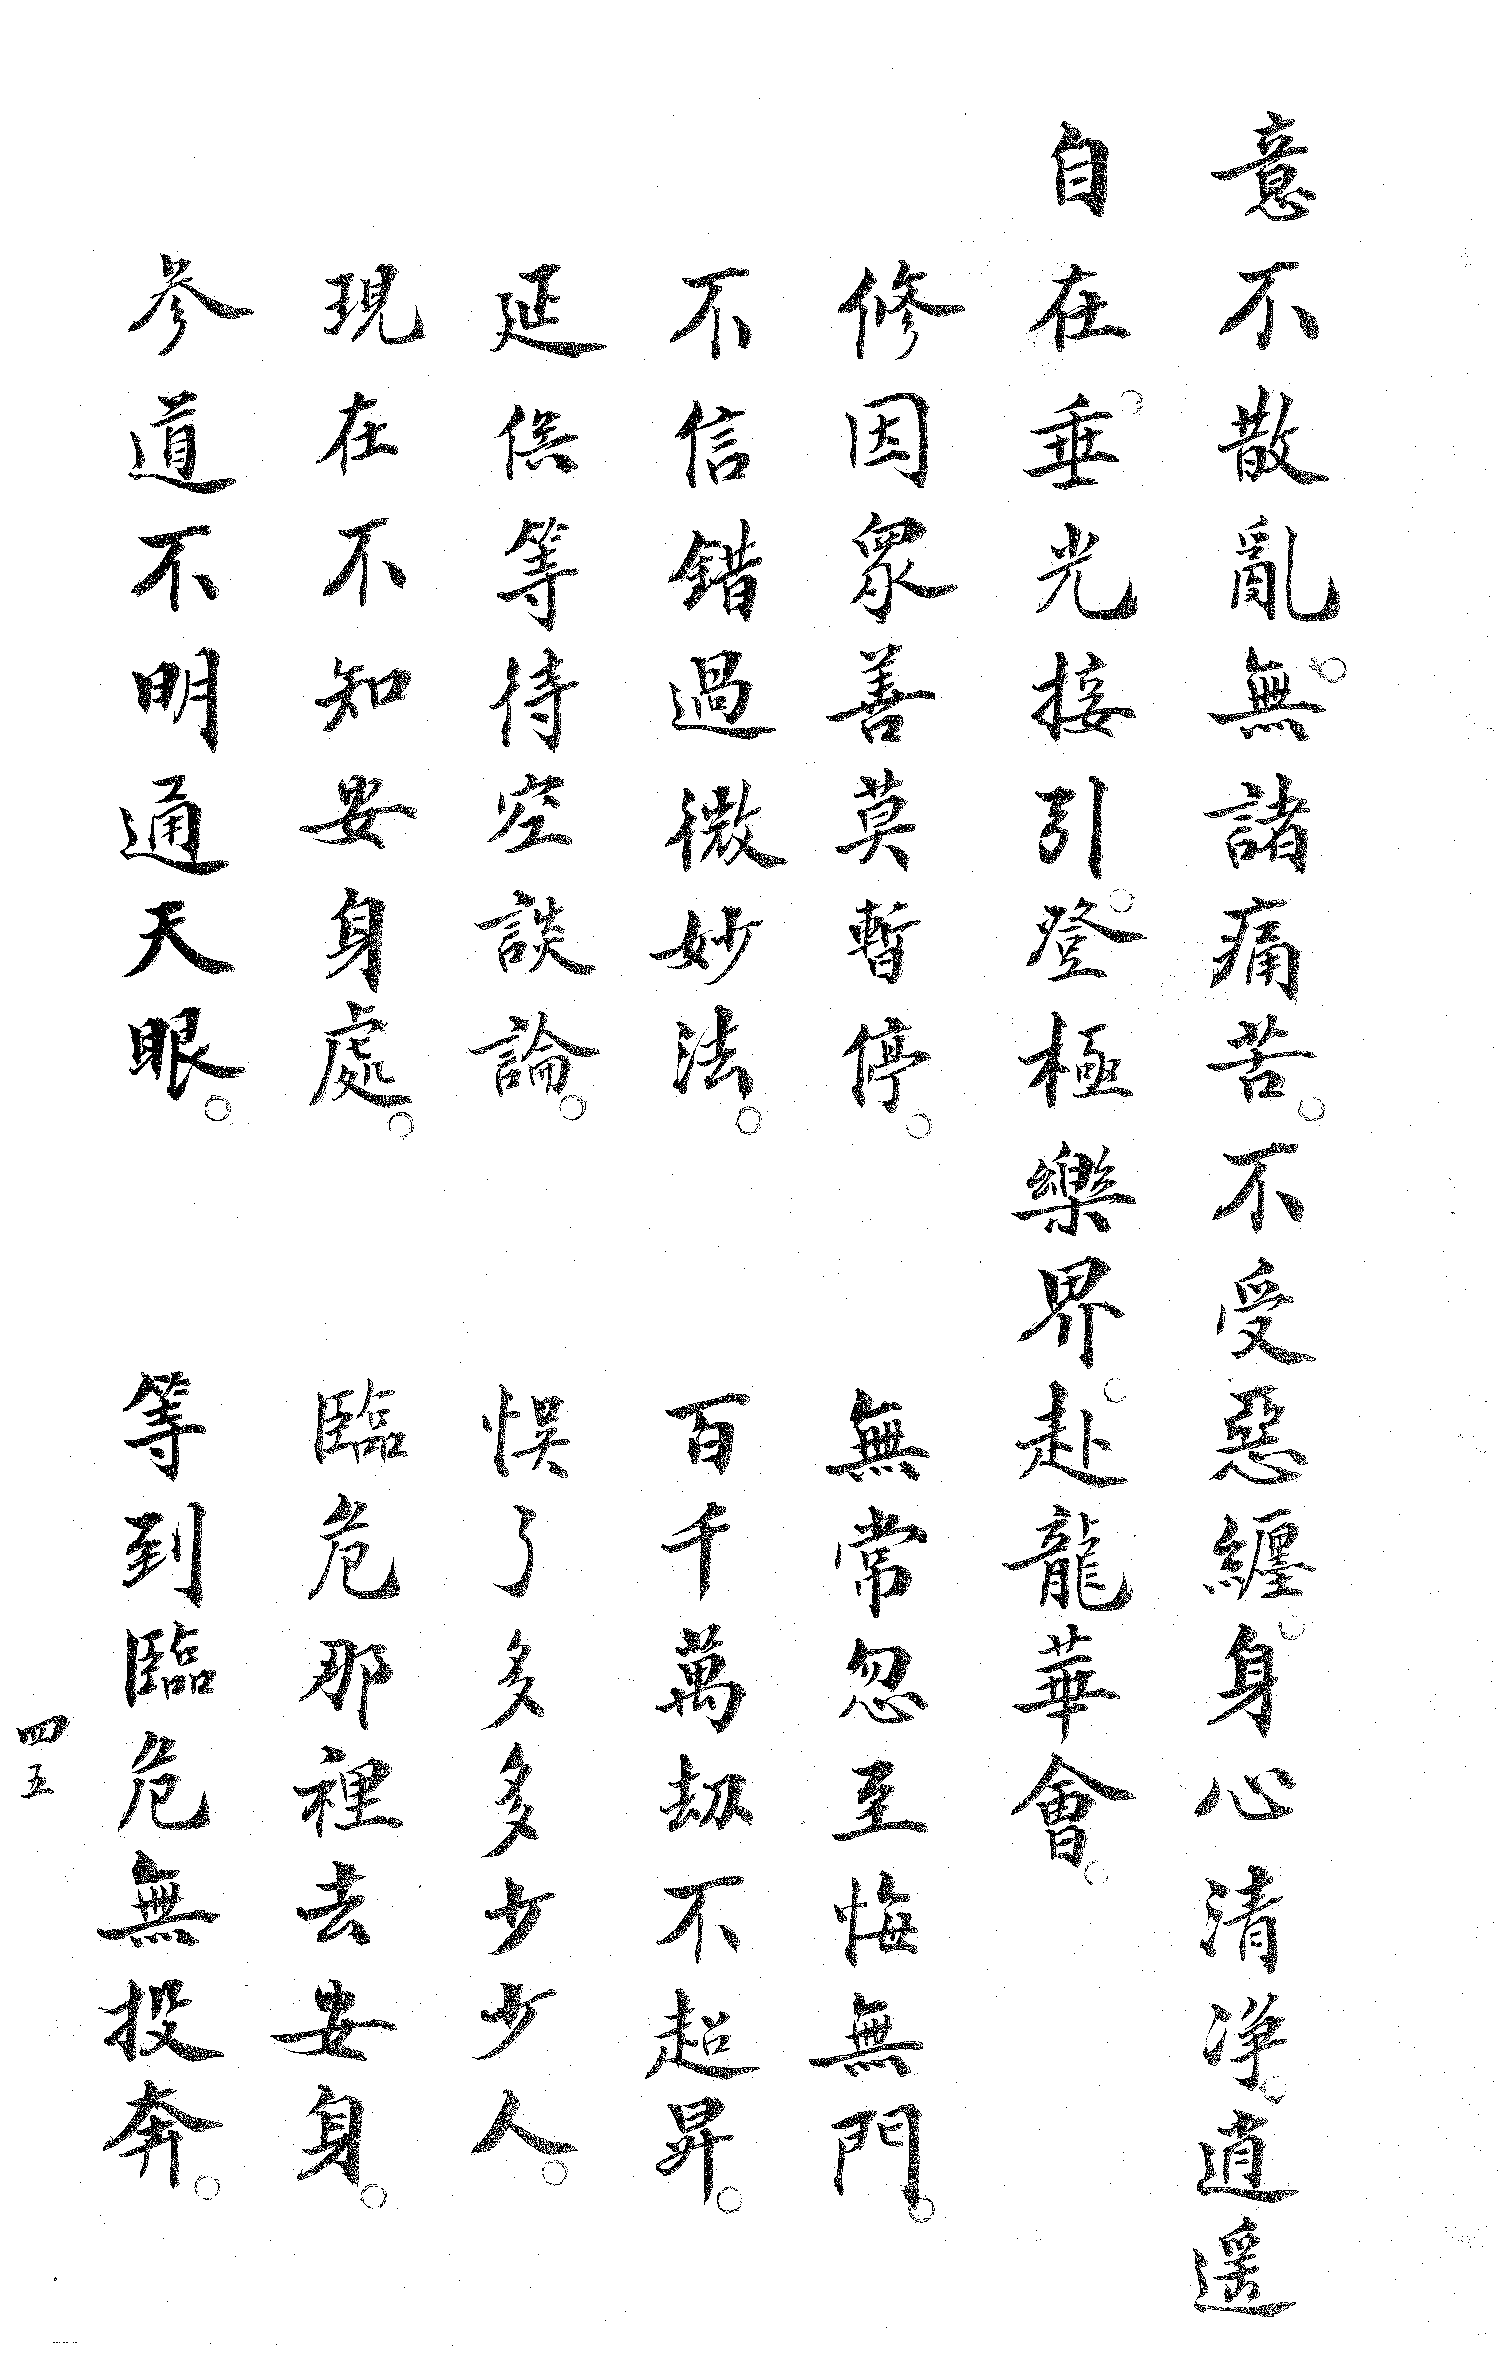 意不散亂。無諸痛苦。不受惡纏。身心清淨。逍遥
自在。垂光接引。登極樂界。赴龍華會。
修因眾善莫暫停。 無常忽至悔無門。
不信錯過微妙法。 百千萬劫不超昇。
延俟等待空談論。 悮了多多少少人。
現在不知安身處。 臨危那裡去安身。
參道不明通天眼。 等到臨危無投奔。
四五